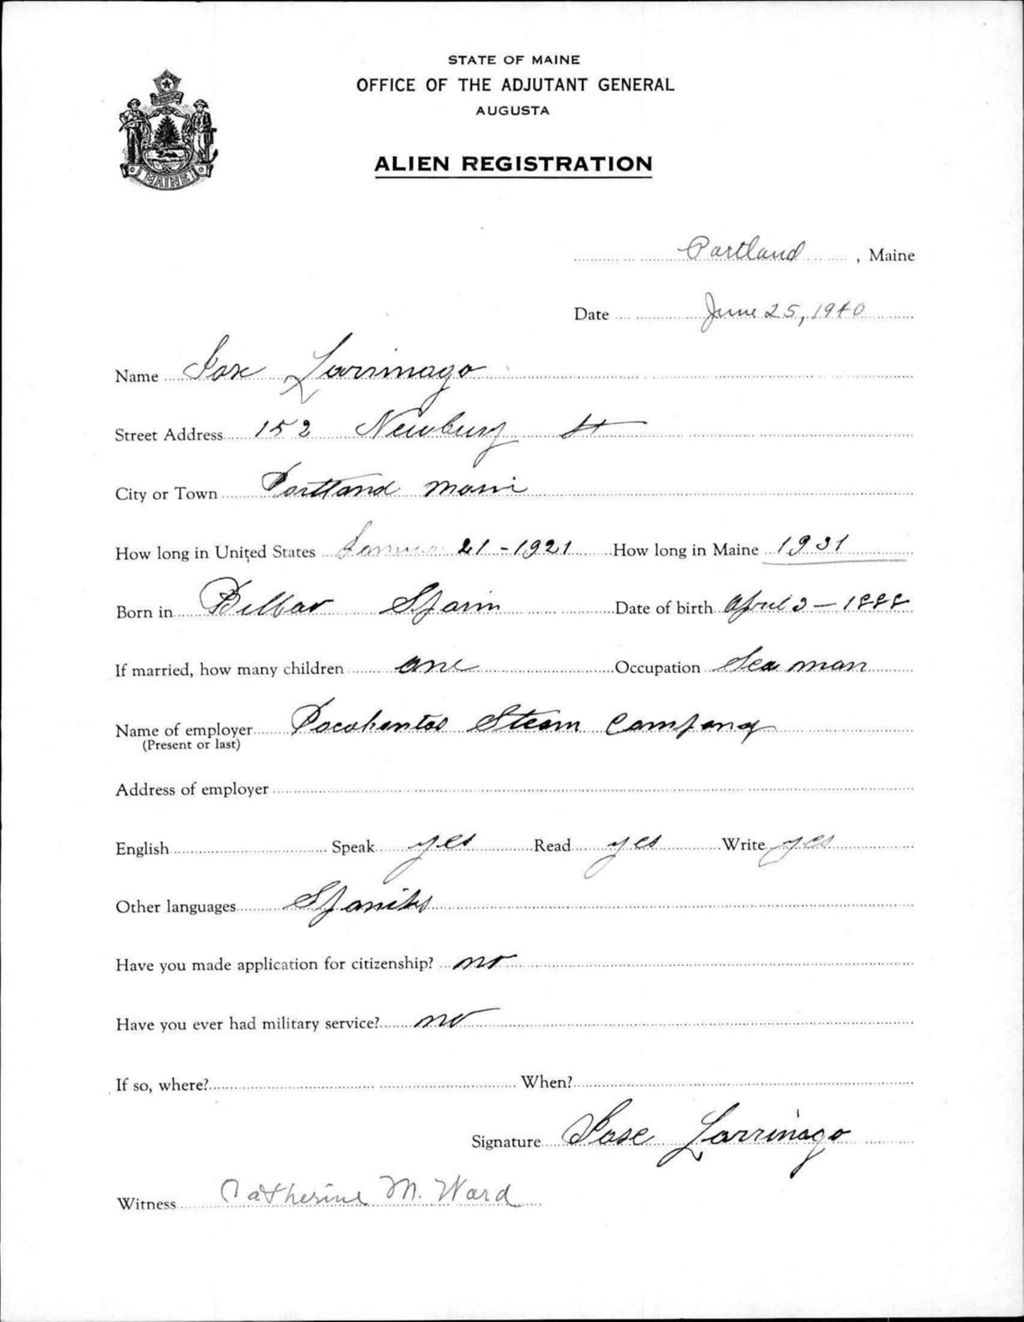 STATE OF MAINE
OFFICE OF THE ADJUTANT GENERAL
AUGUSTA
ALIEN REGISTRATION
MAINE
Portland, Maine
Date June 25, 1940
Name Jose Larrinago
Street Address 152 Newbury St
City or Town Portland
How long in United States 21 - 1921 How long in Maine 1931
Born in Bilbao Spain Date of birth April 3 - 1888
If married, how many children one Occupation Seaman
Name of employer Pocahontas Steam Company
(Present or last)
Address of employer
English Speak yes Read yes Write yes
Other languages
Have you made application for citizenship? no
Have you ever had military service? no
If so, where? When?
Signature Jose Larrinago
Witness Catherine M. Ward